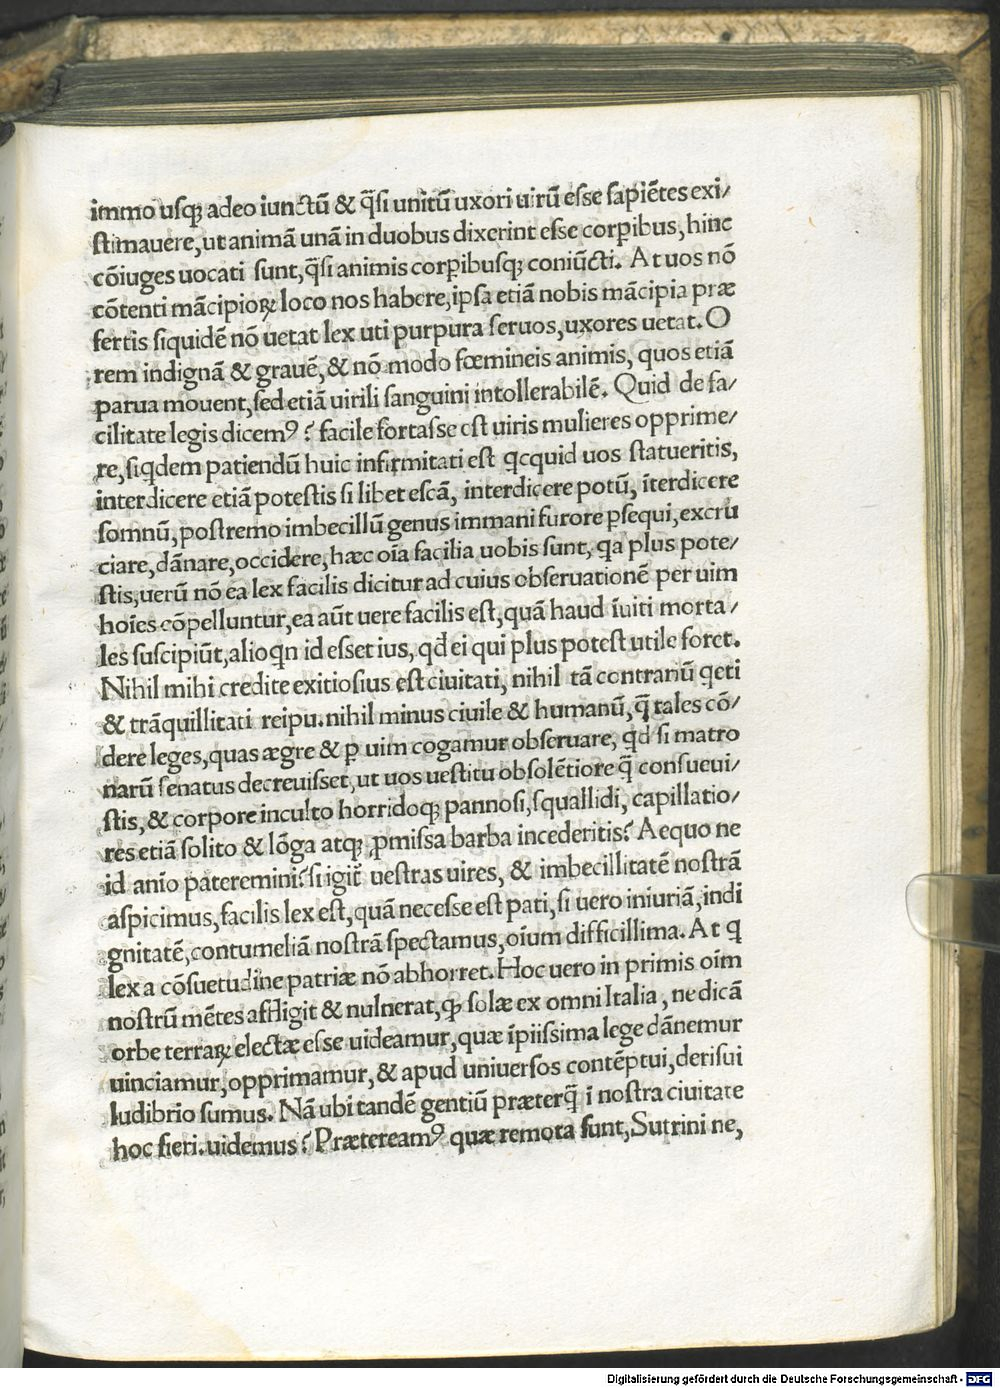 immo usq; adeo iunctū & q̃si unitū uxori uirū esse sapiētes exi/
stimauere, ut animā unā in duobus dixerint esse corꝑibus, hinc
cōiuges uocati sunt, q̃si animis corꝑibusq; coniūcti. At uos nō
cōtenti mācipioꝝ loco nos habere, ipsa etiā nobis mācipia præ
fertis siquidē nō uetat lex uti purpura seruos, uxores uetat. O
rem indignā & grauē, & nō modo fœmineis animis, quos etiā
parua mouent, sed etiā uirili sanguini intollerabilē. Quid de fa/
cilitate legis dicemꝰ? facile fortasse est uiris mulieres opprime/
re, siqdem patiendū huic infirmitati est qcquid uos statueritis,
interdicere etiā potestis si libet escā, interdicere potū, īterdicere
somnū, postremo imbecillū genus immani furore ꝑsequi, excru
ciare, dānare, occidere, hæc oīa facilia uobis sunt, qa plus pote/
stis, uerū nō ea lex facilis dicitur ad cuius obseruationē per uim
hoīes cōpelluntur, ea aūt uere facilis est, quā haud īuiti morta/
les suscipiūt, alioqn id esset ius, qd ei qui plus potest utile foret.
Nihil mihi credite exitiosius est ciuitati, nihil tā contrariū qeti
& trāquillitati reipu. nihil minus ciuile & humanū, q̃ tales cō/
dere leges, quas ægre & ꝑ uim cogamur obseruare, qd si matro
narū senatus decreuisset, ut uos uestitu obsolētiore q̃ consueui/
stis, & corpore inculto horridoq; pannosi, squallidi, capillatio/
res etiā solito & lōga atq; ꝓmissa barba incederitis? Aequo ne
id anīo pateremini? si igit̃ uestras uires, & imbecillitatē nostrā
aspicimus, facilis lex est, quā necesse est pati, si uero iniuriā, indi
gnitatē, contumeliā nostrā spectamus, oīum difficillima. At q
lex a cōsuetudine patriæ nō abhorret. Hoc uero in primis oīm
nostrū mētes affligit & nulnerat, ꝙ solæ ex omni Italia, ne dicā
orbe terraꝝ electæ esse uideamur, quæ īpiissima lege dānemur
uinciamur, opprimamur, & apud uniuersos contēptui, derisui
ludibrio sumus. Nā ubi tandē gentiū præterq̃ i nostra ciuitate
hoc fieri. uidemus? Prætereamꝰ quæ remota sunt, Sutrini ne,
Digitalisierung gefördert durch die Deutsche Forschungsgemeinschaft - DFG